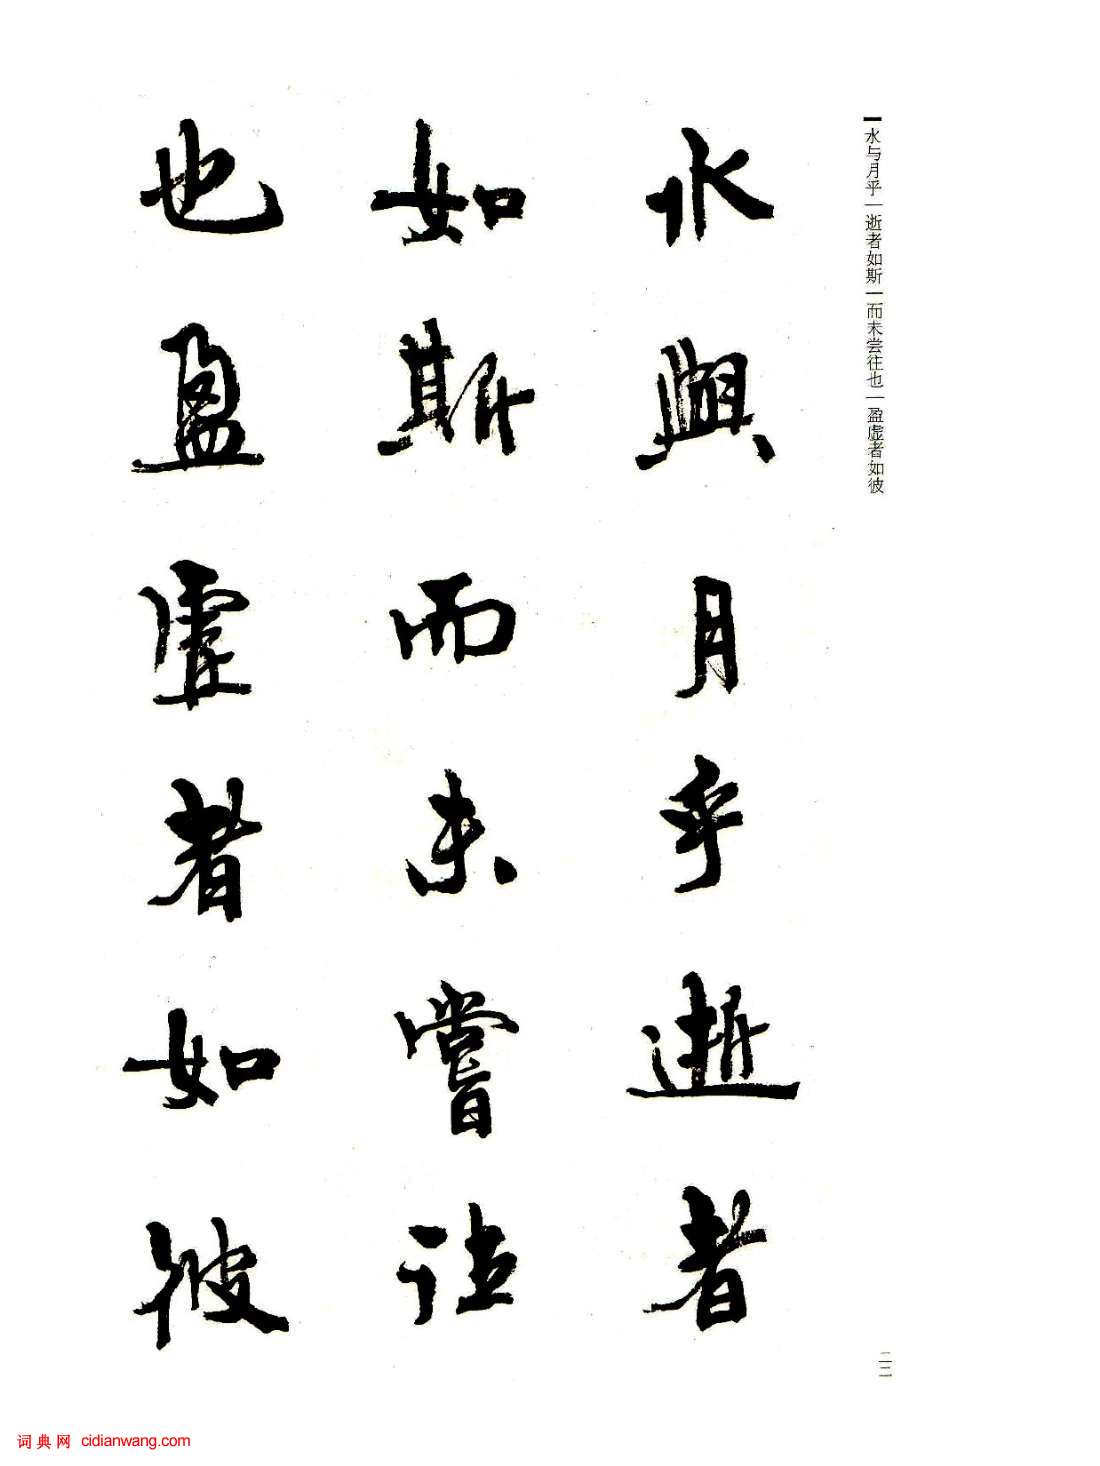 水与月乎｜逝者如斯｜而未尝往也｜盈虚者如彼
水與月乎逝者
如斯而未嘗往
也盈虛者如彼
二三
词典网 cidianwang.com